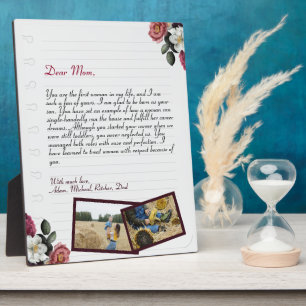 Dear Mom,
You are the first woman in my life, and I am
such a fan of yours. I am glad to be born as your
son. You have set an example of how a woman can
single-handedly run the house and fulfill her career
dreams. Although you started your career when we
were still toddlers, you never neglected us. You
managed both roles with ease and perfection. I
have learned to treat women with respect because of
you.
With much love,
Adam, Michael, Ritcher, Dad